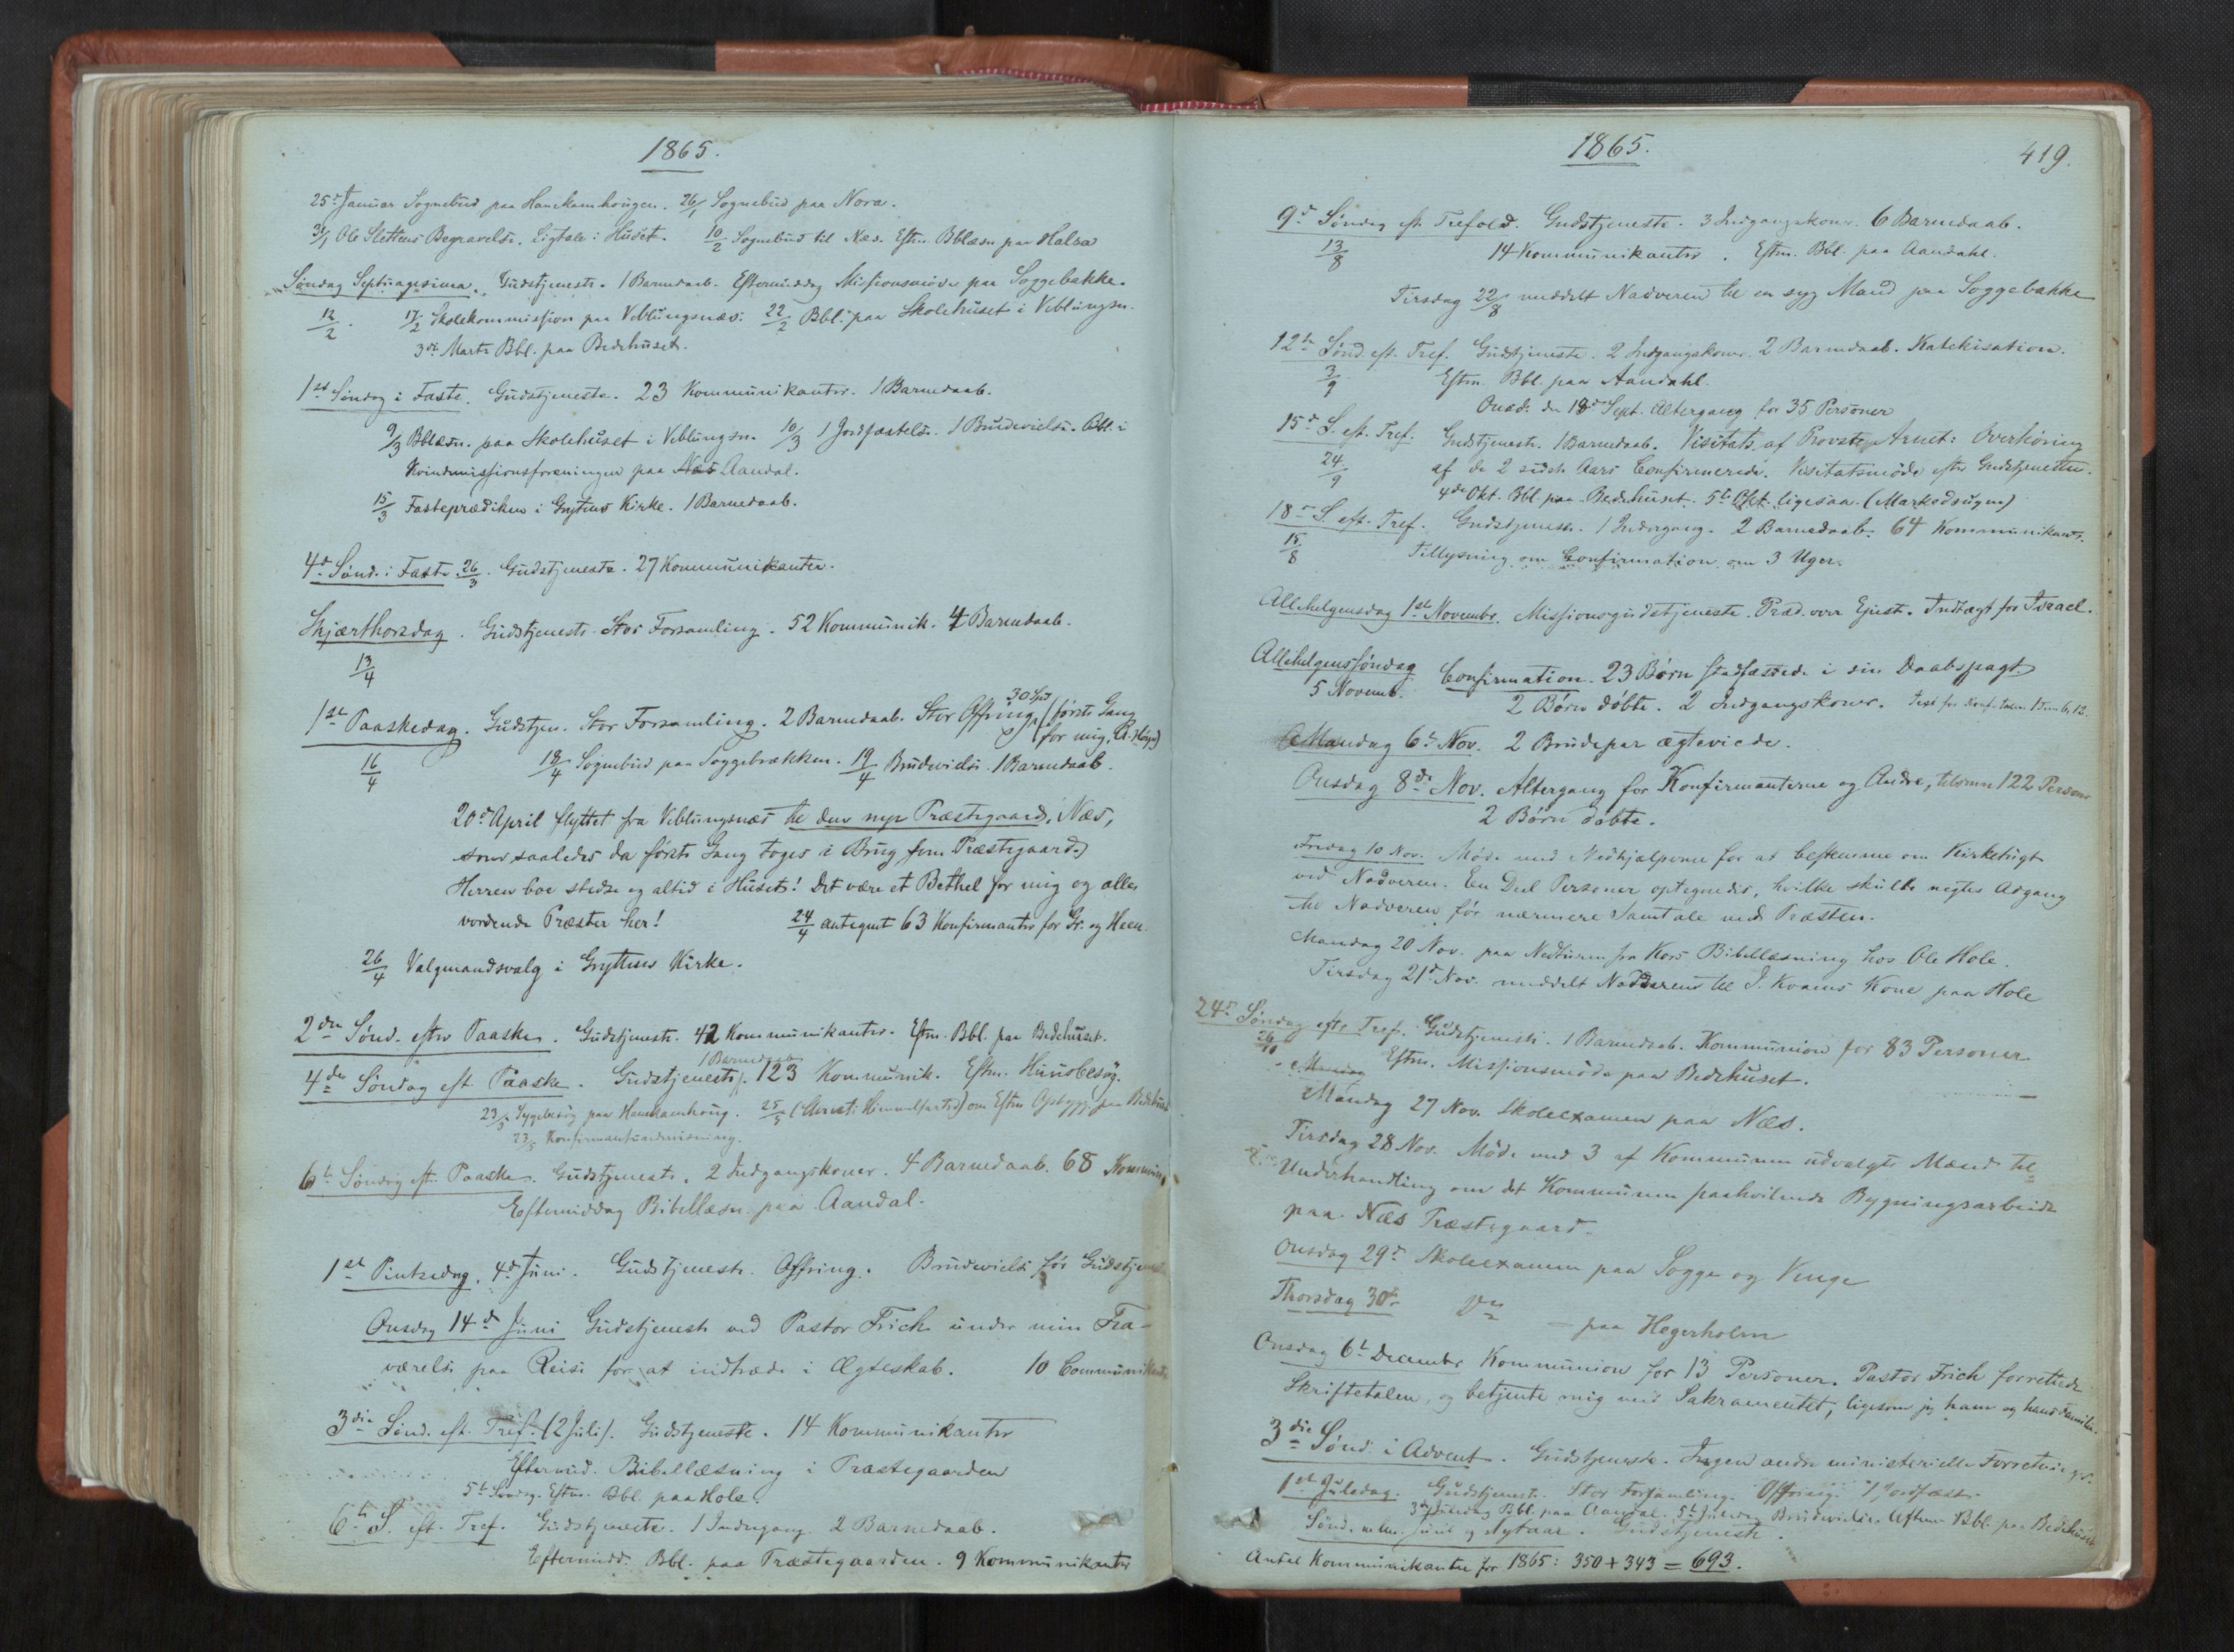 1865.
25d Januar Sognebud paa Hanekamhougen. 26/1 Sognebud paa Nora.
31/1 Ole Slettens Begravelse. Ligtale i Huset. 10/2 Sognebud til Næs. Eftm. Bblæsn. paa Halsa
Søndag Septuagesima. Gudstjeneste. 1 Barnedaab. Eftermiddag Missionsmøde paa Soggebakke.
12/2. 17/2 Skolekommission paa Veblungsnæs. 22/2 Bbl. paa Skolehuset i Veblungsn.
3die Marts Bbl. paa Bedehuset.
1ste Søndag i Faste. Gudstjeneste. 23 Kommunikanter. 1 Barnedaab.
9/3 Bblæsn. paa Skolehuset i Veblungsn. 10/3 1 Jordfæstelse. 1 Brudevielse. Bbl. i
Kvindemissionsforeningen paa Næs Aandal.
15/3 Fasteprædiken i Gryttens Kirke. 1 Barnedaab.
4de Sønd. i Faste 26/3. Gudstjeneste. 27 Kommunikanter.
Skjærthorsdag. Gudstjeneste. Stor Forsamling. 52 Kommunik. 4 Barnedaab.
13/4
30 Spd
1ste Paaskedag. Gudstjen. Stor Forsamling. 2 Barnedaab. Stor Offring (første Gang
for mig,
16/4 18/4 Sognebud paa Soggebrækken. 19/4 Brudevielse. 1 Barnedaab.
20de April flyttet fra Veblungsnæs til den nye Præstegaard, Næs,
som saaledes da første Gang toges i Brug som Præstegaard.)
Herren boe stedse og altid i Huset! Det være et Bethel for mig og alle
vordende Præster her! 24/4 antegnet 63 Konfirmanter for Gr. og Heen.
26/4 Valgmandsvalg i Gryttens Kirke.
2den Sønd. efter Paaske. Gudstjeneste. 42 Kommunikanter. Eftm. Bbl. paa Bedehuset.
1 Barnedaab
4de Søndag eft. Paaske. Gudstjeneste. 123 Kommunik. Eftm. Huusbesøg.
23/5 Sygebesøg paa Hanekamhoug. 25/5 (Christi Himmelfartsd) om Eftm Opbygg. paa Bedehuset
23/5 Konfirmantundervisning.
6te Søndag eft. Paaske. Gudstjeneste. 2 Indgangskoner. 4 Barnedaab. 68 Kommunik.
Eftermiddag Bibellæsn. paa Aandal.
1ste Pintsedag. 4de Juni. Gudstjeneste. Offring. Brudevielse før Gudstjeneste
Onsdag 14de Juni Gudstjeneste ved Pastor Frich under min Fra-
værelse paa Reise for at indtræde i Ægteskab. 10 Communikanter
3die Sønd. eft. Tref. (2 Juli). Gudstjeneste. 14 Kommunikanter
Eftermid. Bibellæsning i Præstegaarden
5te Søndag. Eftm. Bbl. paa Hole.
6te S. eft. Tref. Gudstjeneste. 1 Indegang. 2 Barnedaab.
Eftermidd. Bbl. paa Præstegaarden. 9 Kommunikanter
1865.
419.
9de Søndag eft. Trefold. Gudstjeneste. 3 Indgangskoner. 6 Barnedaab.
13/8 14 Kommunikanter. Eftm. Bbl. paa Aandahl.
Tirsdag 22/8 meddelt Nadveren til en syg Mand paa Soggebakke
12te Sønd. eft. Tref. Gudstjeneste. 2 Indgangskoner. 2 Barnedaab. Katekisation.
3/9 Eftm. Bbl. paa Aandahl.
Onsd. den 18de Sept. Altergang for 35 Personer
15de S. eft. Tref. Gudstjeneste. 1 Barnedaab. Visitats af Provst Arnet: Overhøring
24/9 af de 2 sidste Aars Confirmerede. Visitatsmøde efter Gudstjenesten.
4de Okt. Bbl. paa Bedehuset. 5te Okt. ligesaa. (Markedsugen)
18de S. eft. Tref. Gudstjeneste. 1 Indegang. 2 Barnedaab. 64 Kommunikanter.
15/8 Tillysning om Confirmation om 3 Uger.
Allehelgensdag 1ste Novembr. Missionsgudstjeneste. Præd. over Ejust. Indtægt for Israel.
Allehelgenssøndag Confirmation. 23 Børn stadfæstede i sin Daabspagt.
5 Novemb. 2 Børn døbte. 2 Indgangskoner. Text for Konf.talen 1 Tim 6, 12.
Mandag 6te Nov. 2 Brudepar ægteviede.
Onsdag 8de Nov. Altergang for Konfirmanterne og Andre, tilsmn 122 Personer
2 Børn døbte.
Fredag 10 Nov. Møde med Medhjælperne for at bestemme om Kirketugt
ved Nadveren. En Deel Personer optegnedes, hvilke skulle negtes Adgang
til Nadveren før nærmere Samtale med Præsten.
Mandag 20 Nov. paa Nedturen fra Kors Bibellæsning hos Ole Hole.
Tirsdag 21de Nov. meddelt Nadveren til J. Kvams Kone paa Hole
24de Søndag efter Tref. Gudstjeneste. 1 Barnedaab. Kommunion for 83 Personer
26/11 Eftm. Missionsmøde paa Bedehuset.
Mandag
Mandag 27 Nov. Skoleexamen paa Næs.
Tirsdag 28 Nov. Møde med 3 af Kommunen udvalgte Mænd til
Underhandling om det Kommunen paahvilende Bygningsarbeide
paa Næs Præstegaard.
Onsdag 29de Skoleexamen paa Sogge og Venge
Thorsdag 30te Do — paa Hegerholm
Onsdag 6te Decembr Kommunion for 13 Personer. Pastor Frich forrettede
Skriftetalen, og betjente mig med Sakramentet, ligesom jeg ham og hans Familie.
3die Sønd. i Advent. Gudstjeneste. Ingen andre ministerielle Forretninger.
1ste Juledag. Gudstjeneste. Stor Forsamling. Offring. 1 Jordfæst.
3die Juledag Bbl. paa Aandal. 5te Juledag Brudevielse. Aften Bbl. paa Bedehuset
Sønd. mellm. Juul og Nytaar. Gudstjeneste.
Antal Kommunikanter for 1865: 350 + 343 = 693.